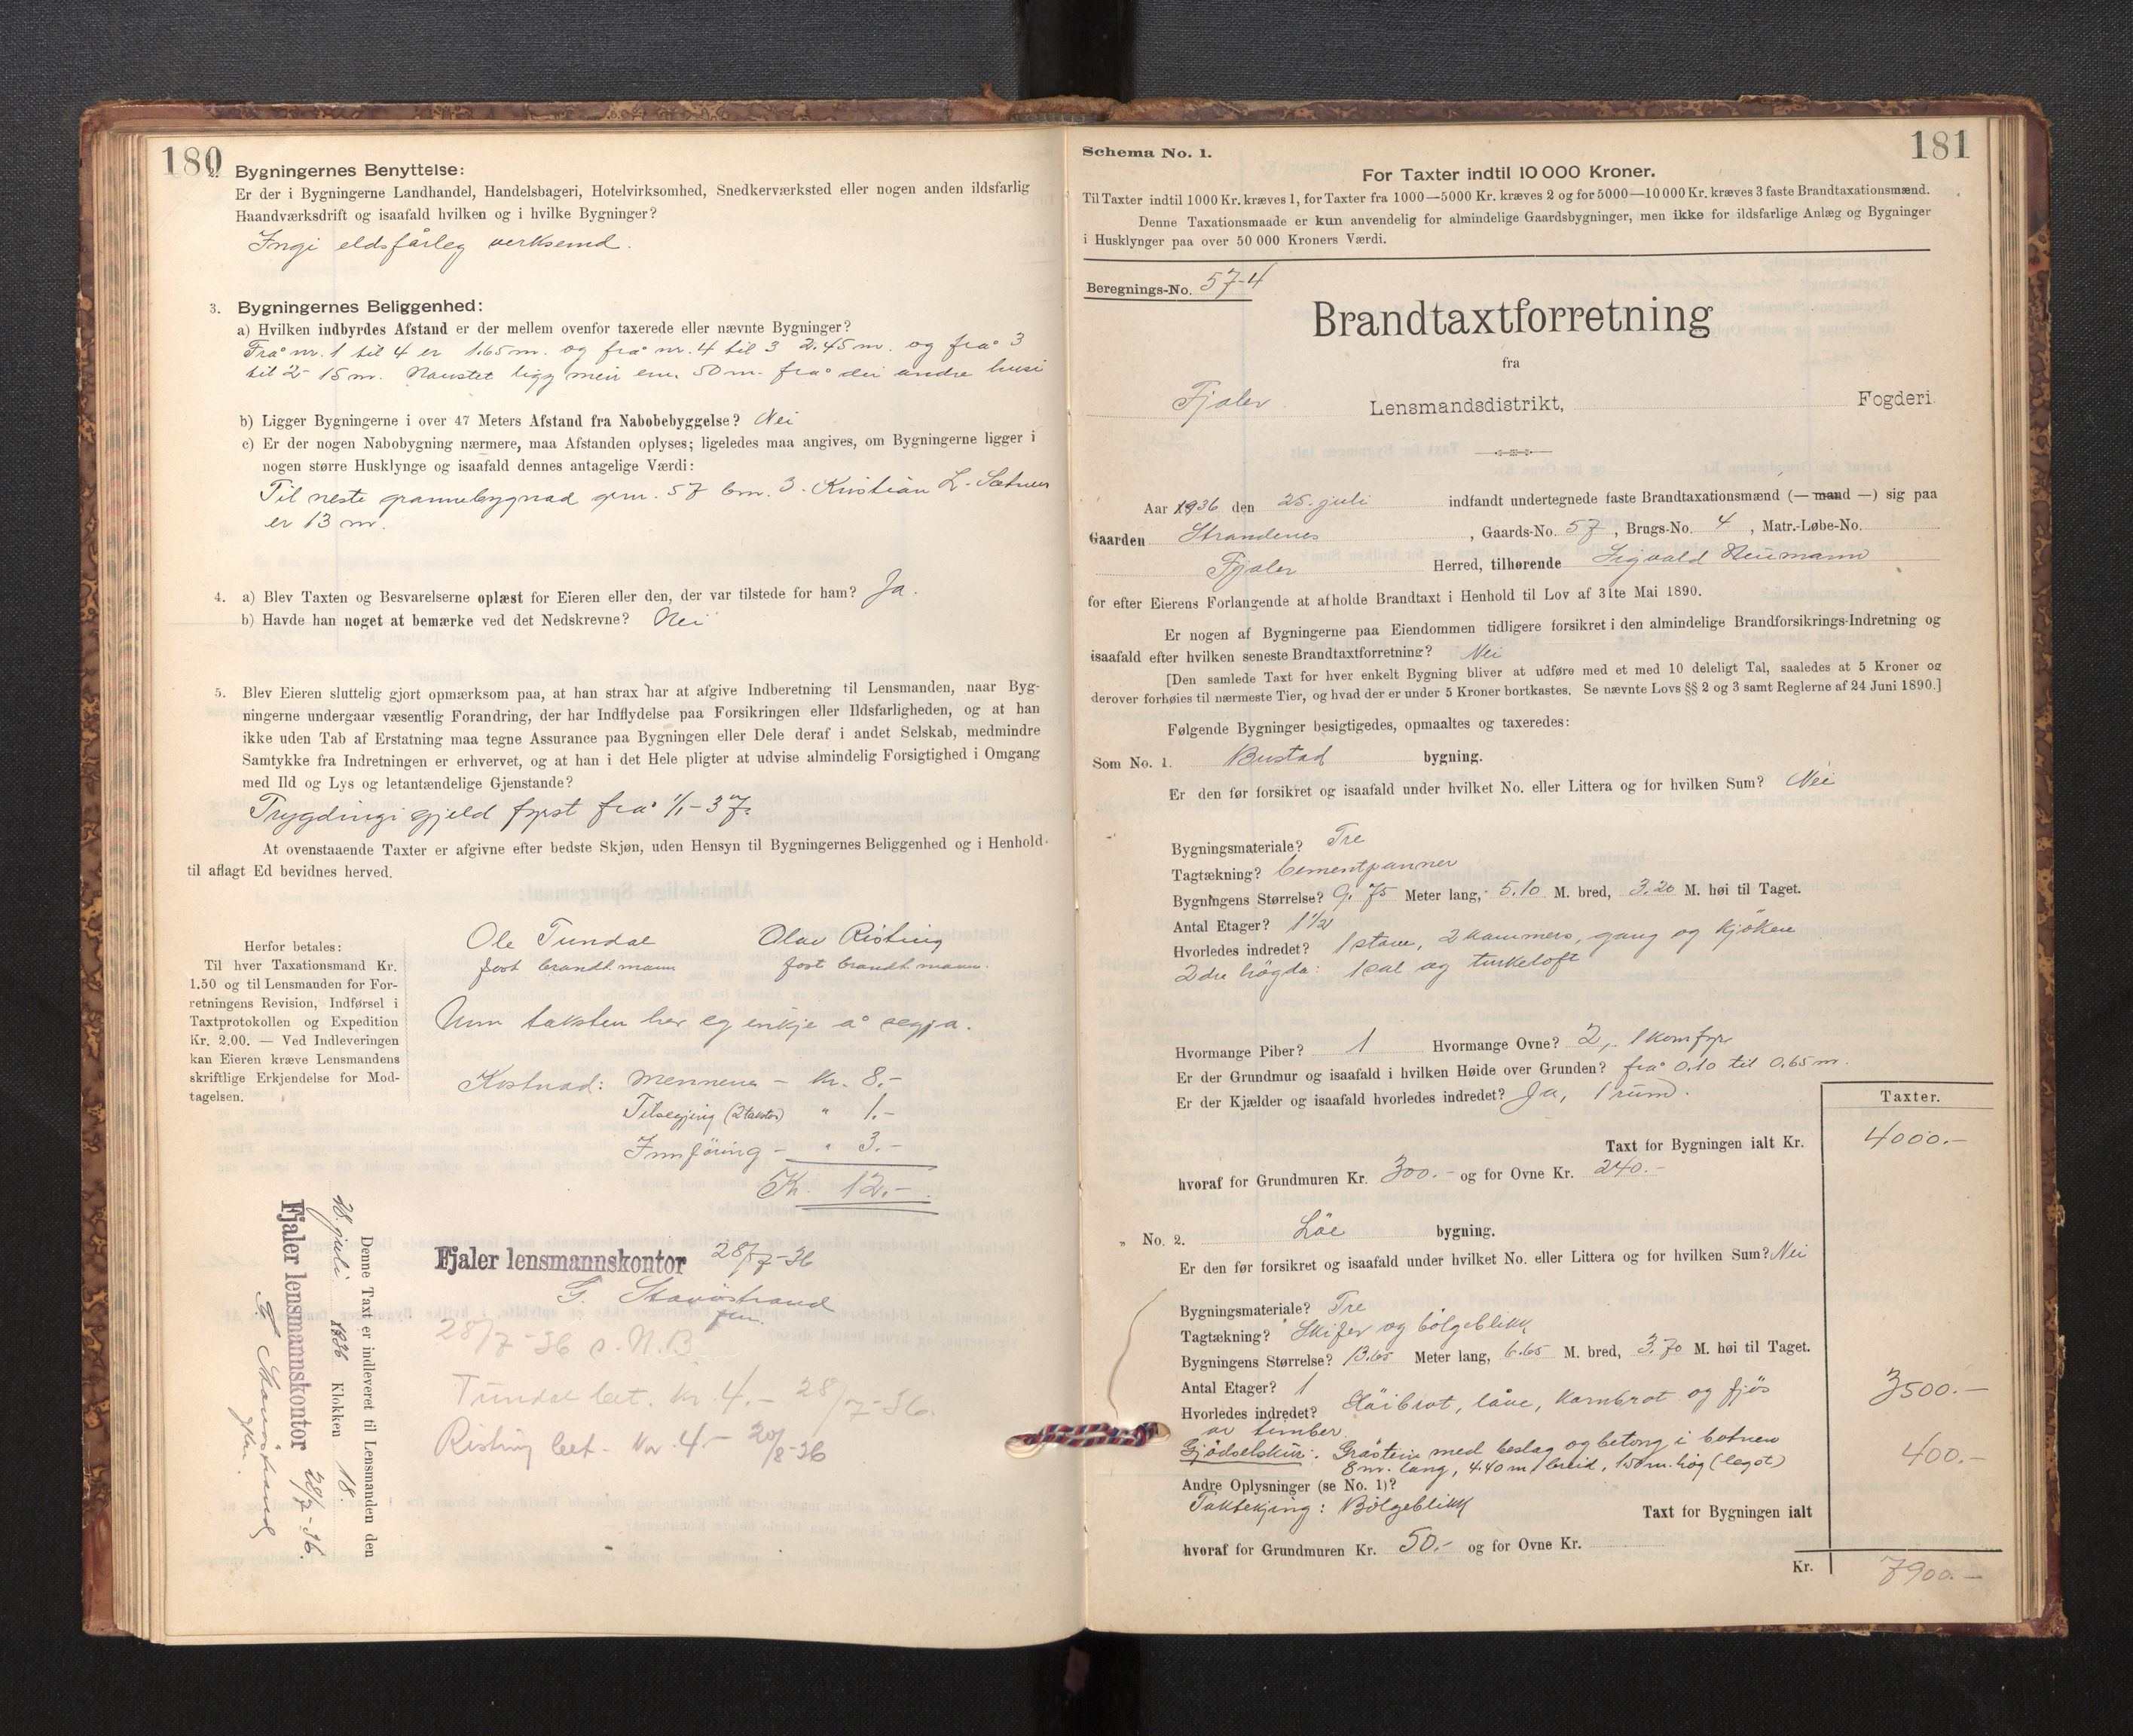 180
2. Bygningernes Benyttelse:
Er der i Bygningerne Landhandel, Handelsbageri, Hotelvirksomhed, Snedkerværksted eller nogen anden ildsfarlig
Haandværksdrift og isaafald hvilken og i hvilke Bygninger?
Ingi eldsfårleg verksemd.
3. Bygningernes Beliggenhed:
a) Hvilken indbyrdes Afstand er der mellem ovenfor taxerede eller nævnte Bygninger?
Frå nr. 1 til 4 er 1.65 m. og frå nr. 4 til 3 2.45 m. og frå 3
til 2 - 15 m. Naustet ligg meir enn 50 m. frå dei andre husi
b) Ligger Bygningerne i over 47 Meters Afstand fra Nabobebyggelse? Nei
c) Er der nogen Nabobygning nærmere, maa Afstanden oplyses; ligeledes maa angives, om Bygningerne ligger i
nogen større Husklynge og isaafald dennes antagelige Værdi:
Til neste grannebygnad grn. 57 brn. 3. Kristian L. Sætnes
er 13 m.
4. a) Blev Taxten og Besvarelserne oplæst for Eieren eller den, der var tilstede for ham? Ja.
b) Havde han noget at bemærke ved det Nedskrevne? Nei
5. Blev Eieren sluttelig gjort opmærksom paa, at han strax har at afgive Indberetning til Lensmanden, naar Byg-
ningerne undergaar væsentlig Forandring, der har Indflydelse paa Forsikringen eller Ildsfarligheden, og at han
ikke uden Tab af Erstatning maa tegne Assurance paa Bygningen eller Dele deraf i andet Selskab, medmindre
Samtykke fra Indretningen er erhvervet, og at han i det Hele pligter at udvise almindelig Forsigtighed i Omgang
med Ild og Lys og letantændelige Gjenstande?
Trygdingi gjeld fyrst frå 1/1-37.
At ovenstaaende Taxter er afgivne efter bedste Skjøn, uden Hensyn til Bygningernes Beliggenhed og i Henhold
til aflagt Ed bevidnes herved.
Ole Tundal Olav Risting
fast brandt.mann fast brandt.mann.
Herfor betales:
Til hver Taxationsmand Kr.
1.50 og til Lensmanden for For-
retningens Revision, Indførsel i
Taxtprotokollen og Expedition
Kr. 2.00. — Ved Indleveringen
kan Eieren kræve Lensmandens
skriftlige Erkjendelse for Mod-
tagelsen.
Um taksten her eg inkje å segja.
Kostnad: Mennene - Kr. 8.-
Tilsegjing (2 takstm) " 1.-
Innføring - " 3.-
Kr. 12.-
Denne Taxt er indleveret til Lensmanden den
28. juli 1936 Klokken 18.
Fjaler lensmannskontor 28/7-36.
Fjaler lensmannskontor 28/7-36
28/7-36 s. N.B
Tundal bet. kr 4.- 28/7-36.
Risting bet. kr. 4.- 20/8-36
181
Schema No. 1.
For Taxter indtil 10 000 Kroner.
Til Taxter indtil 1000 Kr. kræves 1, for Taxter fra 1000—5000 Kr. kræves 2 og for 5000—10000 Kr. kræves 3 faste Brandtaxationsmænd.
Denne Taxationsmaade er kun anvendelig for almindelige Gaardsbygninger, men ikke for ildsfarlige Anlæg og Bygninger
i Husklynger paa over 50 000 Kroners Værdi.
Beregnings-No. 57-4
Brandtaxtforretning
fra
Fjaler Lensmandsdistrikt, Fogderi
Aar 1936 den 25. juli indfandt undertegnede faste Brandtaxationsmænd (— mand —) sig paa
Gaarden Strandenes, Gaards-No. 57, Brugs-No. 4, Matr.-Løbe-No.
Fjaler Herred, tilhørende Sigvald Neumann
for efter Eierens Forlangende at afholde Brandtaxt i Henhold til Lov af 31te Mai 1890.
Er nogen af Bygningerne paa Eiendommen tidligere forsikret i den almindelige Brandforsikrings-Indretning og
isaafald efter hvilken seneste Brandtaxtforretning? Nei
[Den samlede Taxt for hver enkelt Bygning bliver at udføre med et med 10 deleligt Tal, saaledes at 5 Kroner og
derover forhøies til nærmeste Tier, og hvad der er under 5 Kroner bortkastes. Se nævnte Lovs §§ 2 og 3 samt Reglerne af 24 Juni 1890.]
Følgende Bygninger besigtigedes, opmaaltes og taxeredes:
Som No. 1. Bustad bygning.
Er den før forsikret og isaafald under hvilket No. eller Littera og for hvilken Sum? Nei
Bygningsmateriale? Tre
Tagtækning? Cementpanner
Bygningens Størrelse? 9.75 Meter lang, 5.10 M. bred, 3.20 M. høi til Taget.
Antal Etager? 1 1/2
Hvorledes indredet? 1 stove, 2 kammers, gang og kjøken
2dre högda: 1 sal og turkeloft
Hvormange Piber? 1 Hvormange Ovne? 2, 1 komfyr
Er der Grundmur og isaafald i hvilken Høide over Grunden? frå 0.10 til 0.65 m.
Er der Kjælder og isaafald hvorledes indredet? Ja, 1 rum.
Taxter.
Taxt for Bygningen ialt Kr. 4000.-
hvoraf for Grundmuren Kr. 300.- og for Ovne Kr. 240.-
" No. 2. Löe bygning.
Er den før forsikret og isaafald under hvilket No. eller Littera og for hvilken Sum? Nei
Bygningsmateriale? Tre
Tagtækning? Skifer og bølgeblikk
Bygningens Størrelse? 13.65 Meter lang, 6.65 M. bred, 3.70 M. høi til Taget.
Antal Etager? 1 3500.-
Hvorledes indredet? Höibrot, låve, kornbrot og fjös
av timber.
Gjödselskur: Gråstein med beslag og betong i botnen 400.-
8 m. lang, 4.40 m. breid, 1.50 m. høg (legot)
Andre Oplysninger (se No. 1)?
Taktekjing: Bölgeblikk Taxt for Bygningen ialt
hvoraf for Grundmuren Kr. 50.- og for Ovne Kr.
Kr. 7900.-